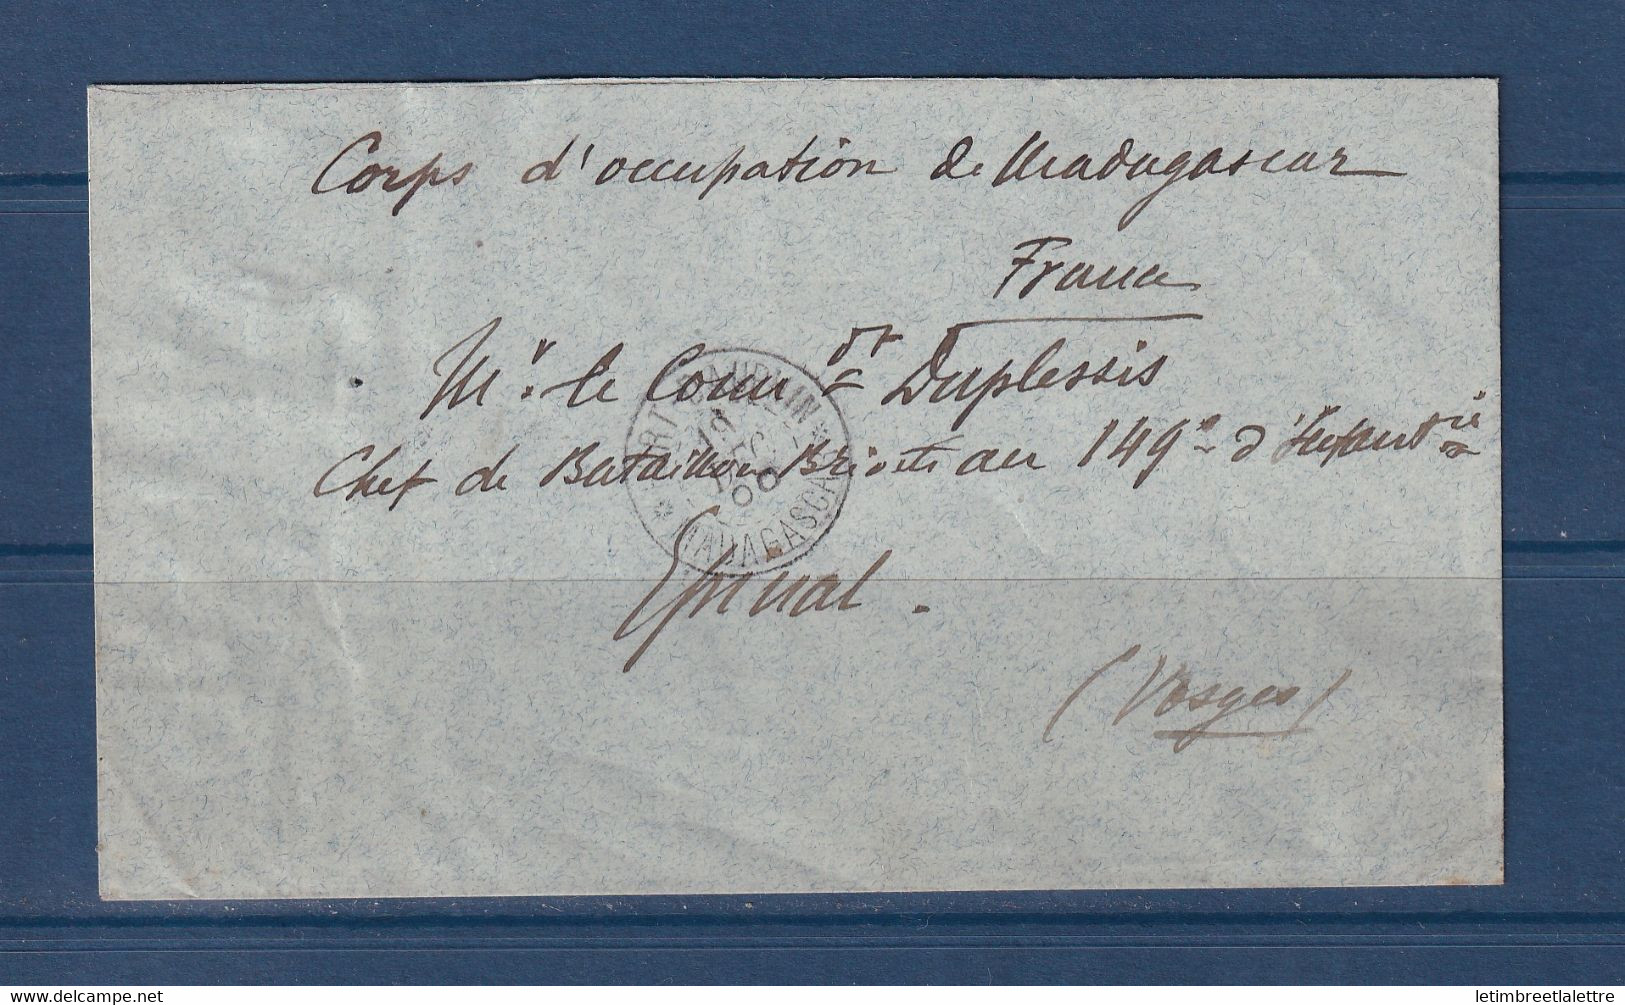 Corps d'occupation de Madagascar
France
Mr. le Comm dt Duplessis
Chef de Bataillon Breveté au 149e d'Infantrie
Epinal.
(Vosges)
FORT DAUPHIN
19
DEC
00
* MADAGASCAR *
delcampe.net
letimbreetlalettre